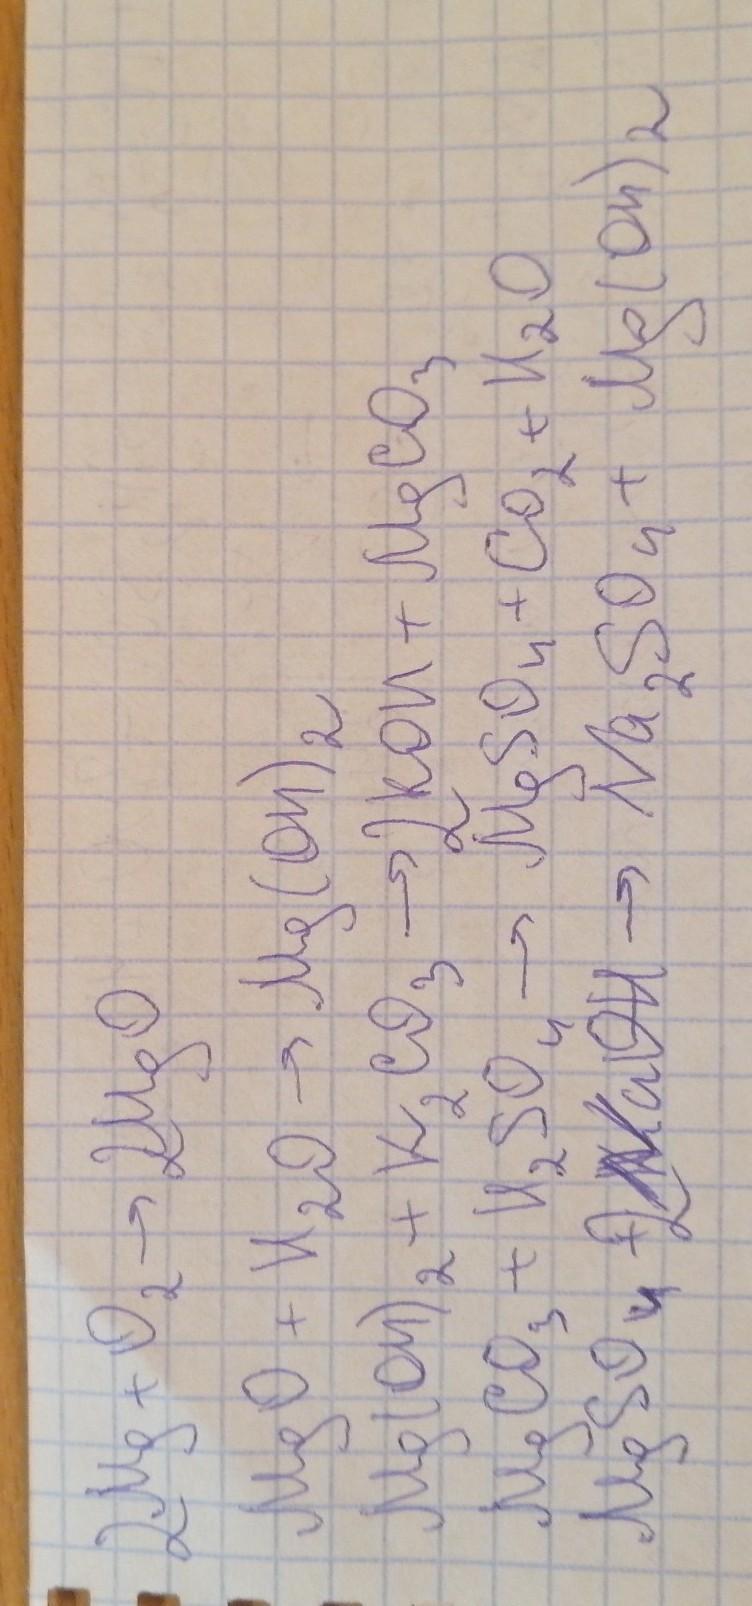 2Mg + O2 → 2MgO
MgO + H2O → Mg(OH)2
Mg(OH)2 + K2CO3 → 2KOH + MgCO3
MgCO3 + H2SO4 → MgSO4 + CO2 + H2O
MgSO4 + 2NaOH → Na2SO4 + Mg(OH)2